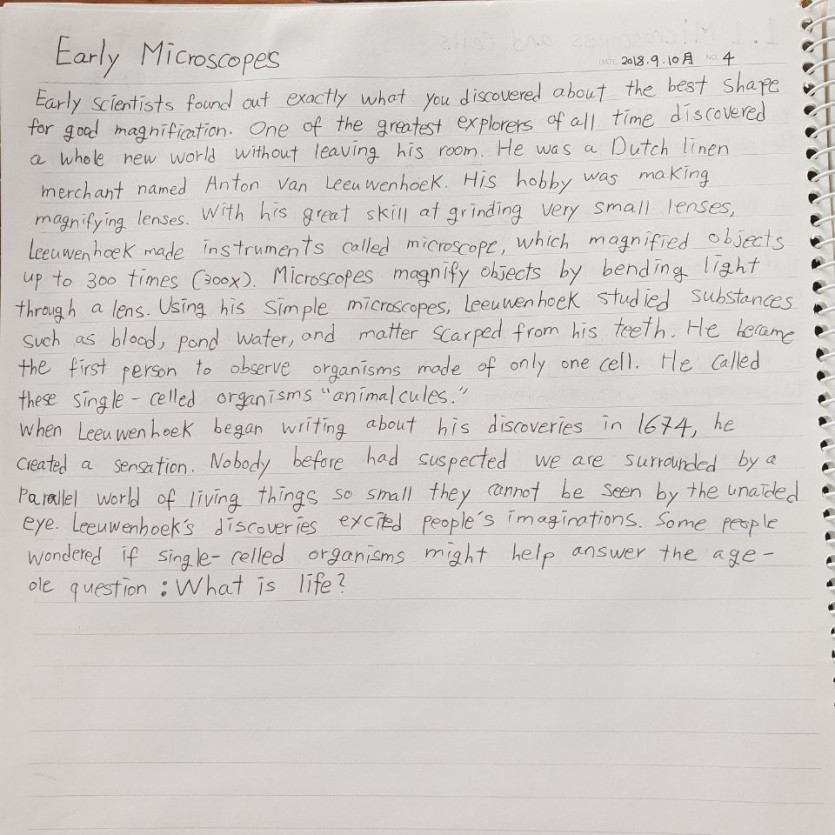 Early Microscopes
DATE 2018.9.10月 NO. 4
Early scientists found out exactly what you discovered about the best shape
for good magnification. One of the greatest explorers of all time discovered
a whole new world without leaving his room. He was a Dutch linen
merchant named Anton van Leeuwenhoek. His hobby was making
magnifying lenses. With his great skill at grinding very small lenses,
Leeuwenhoek made instruments called microscope, which magnified objects
up to 300 times (300x). Microscopes magnify objects by bending light
through a lens. Using his simple microscopes, Leeuwenhoek studied substances
such as blood, pond water, and matter scarped from his teeth. He became
the first person to observe organisms made of only one cell. He called
these single-celled organisms "animalcules."
When Leeuwenhoek began writing about his discoveries in 1674, he
created a sensation. Nobody before had suspected we are surrounded by a
Parallel world of living things so small they cannot be seen by the unaided
eye. Leeuwenhoek's discoveries excited people's imaginations. Some people
wondered if single-celled organisms might help answer the age-
ole question : What is life?